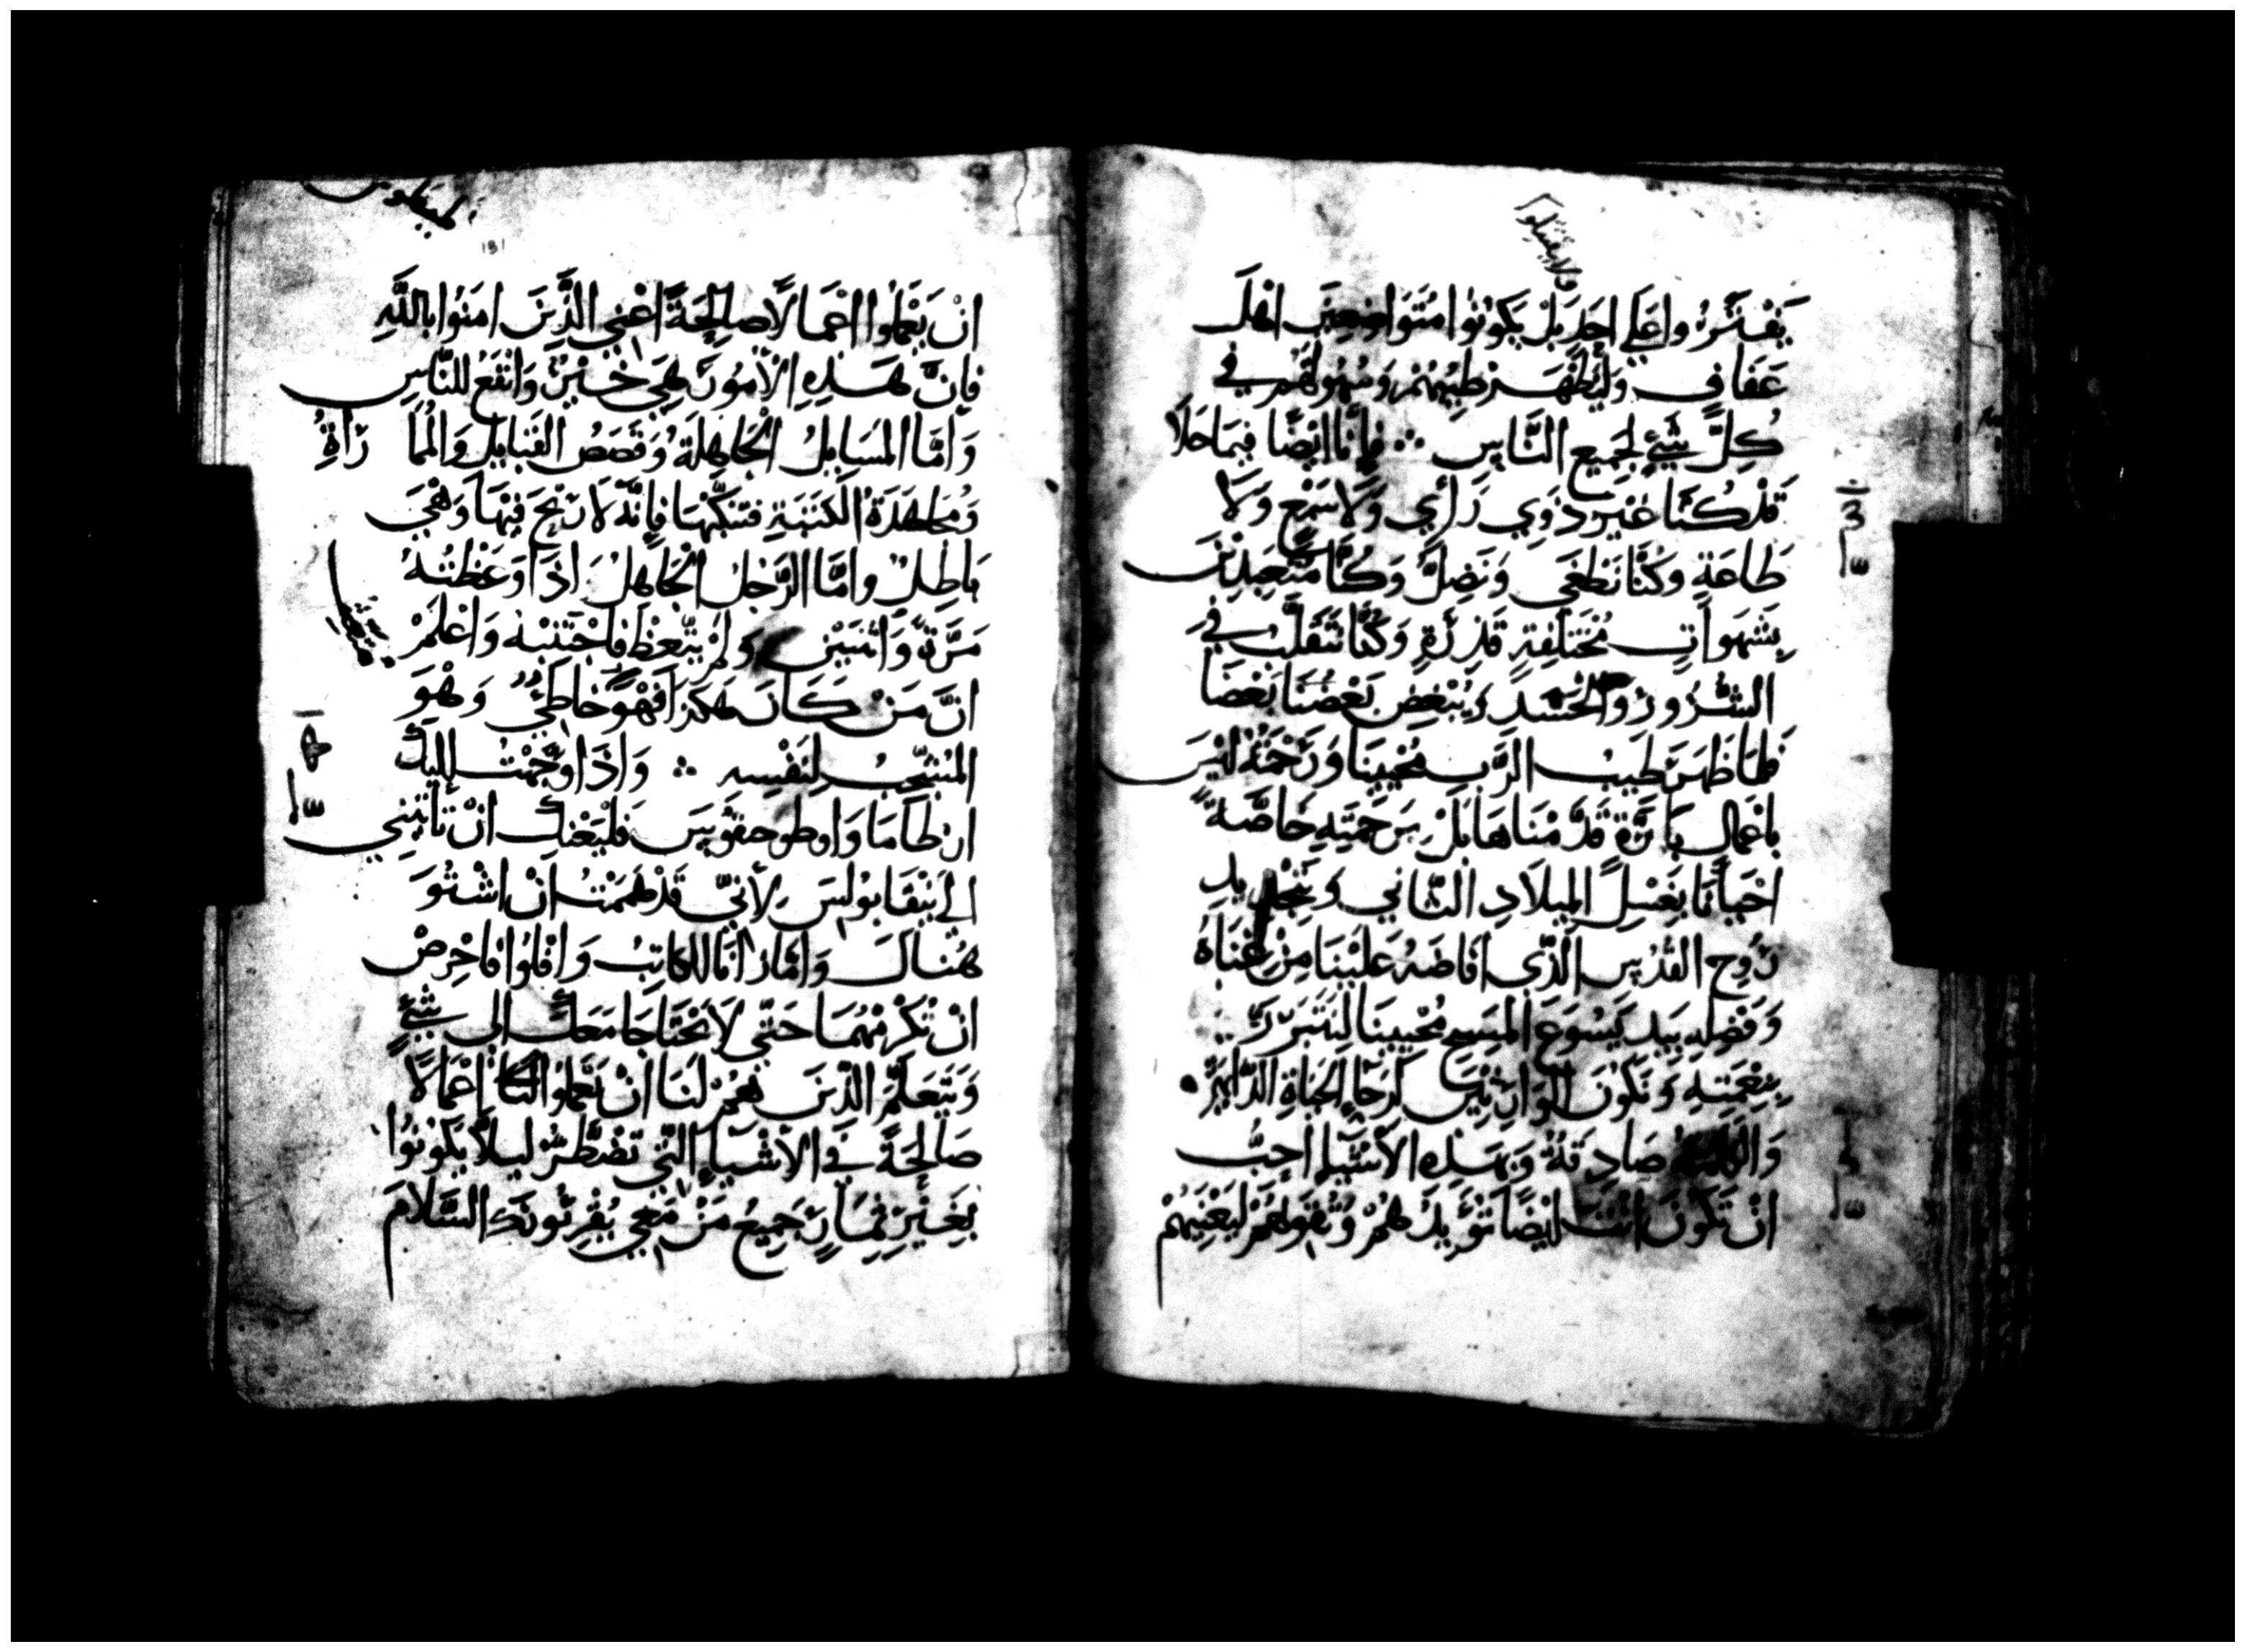 يَفْتَرُوا عَلَي احَدٍ بَلْ يَكُونُوا مُتَوَاضِعِينَ اهْلَ
عَفَافٍ وَلْيُظْهَر طِيبُهُمْ وَسُهُولَتُهُم في
كُلِّ شَيْءٍ لجَمِيعِ النَّاسِ ∴ فَانَّا ايْضًا فِيمَا خَلَا
قَدْ كُنَّا غَيْرَ ذَوِي رَأيٍ وَلَا سَمْعٍ وَلَا
طَاعَةٍ وَكُنَّا نَطْغَي وَنَضِلُّ وَكُنَّا مُتَعَبِّدِينَ
بِشَهَوَاتٍ مُخْتَلِفَةٍ قَذِرَةٍ وَكُنَّا نَتَقَلَّبُ في
الشُّرُورِ وَالْحَسَدِ يُبْغِضُ بَعْضُنَا بَعْضَا
فَلَمَّا ظَهَرَ طِيبُ الرَّبِّ مُحْيِينَا وَرَحْمَتُهُ لَيْسَ
بِاعْمَالٍ بَارَّةٍ قَدَّمْنَاهَا بَلْ بِرَحْمَتِهِ خَاصَّةً
احْيَانَا بِغَسْلِ الْمِيلَادِ الثَّانِي وَتَجْدِيدِ
رُوحِ القُدُسِ الَّذِي افَاضَهُ عَلَيْنَا مِنْ غِنَاهُ
وَفَضْلِهِ بِيَدِ يَسُوعَ الْمَسِيحِ مُحْيِينَا لِنَتَبَرَّرَ
بِنِعْمَتِهِ وَنَكُونَ الْوَارِثِينَ لِرَجَاءِ الْحَيَاةِ الدَّايِمَةِ
وَالْكَلِمَةُ صَادِقَةٌ وَبِهَذِهِ الْأَشْيَاءِ احِبُّ
انْ تَكُونَ انْتَ ايْضًا تُؤَيِّدُهُمْ وَتُقَوِّيهُمْ لِيَعْنِيهُمْ
انْ يَعْمَلُوا اعْمَالًا صَالِحَةً اعْنِي الَّذِينَ امَنُوا بِاللَّهِ
فَانَّ هَذِهِ الْأُمُورَ هِيَ خَيْرٌ وَانْفَعُ لِلنَّاسِ
وَأمَّا الْمَسَايِلُ الْجَاهِلَةُ وَقَصَصُ القَبَايِلِ وَالْمُمَارَاةِ
وَمُجَاهَدَةُ الْكَتَبَةِ فَتَنَكَّبْهَا فَانَّهُ لَا رِبْحَ فِيهَا وَهْيَ
بَاطِلٌ وَامَّا الرَّجُلُ الْجَاهِلُ اذَا وَعَظْتَهُ
مَرَّةً وَاثْنَتَيْنِ وَلَمْ يَتَّعِظْ فَاجْتَنِبْهُ وَاعْلَمْ
انَّ مَنْ كَانَ هَكَذَا فَهُوَ خَاطِئٌ وَهْوَ
الْمُشْجِبُ لِنَفْسِهِ ∴ وَاذَا وَجَّهْتُ إِلَيْكَ
ارْطَامَا وَاوطوحقوسَ فَلْيَعْنِكَ انْ تَأْتِيَنِي
الي نِيقَابُولِسَ لِأَنِّي قَدْ هَمَمْتُ انْ اشْتُوَ
هُنَاكَ وَامَّا زَانَا الكَاتِبُ وَافْلُوا فَاحْرِصْ
انْ تُكْرِمْهُمَا حَتَّي لَا يَحْتَاجَا مَعَكَ الى شَيْءٍ
وَيَتَعَلَّمَ الَّذِينَ هُمْ لَنَا انْ يَعْمَلُوا اعْمَالًا
صَالِحَةً في الْأَشْيَاءِ الَّتِي تُضْطَرُّ لِيلَّا يَكُونُوا
بِغَيْرِ ثِمَارٍ جَمِيعُ مَنْ مَعِي يُقْرِئُونَكَ السَّلَامَ